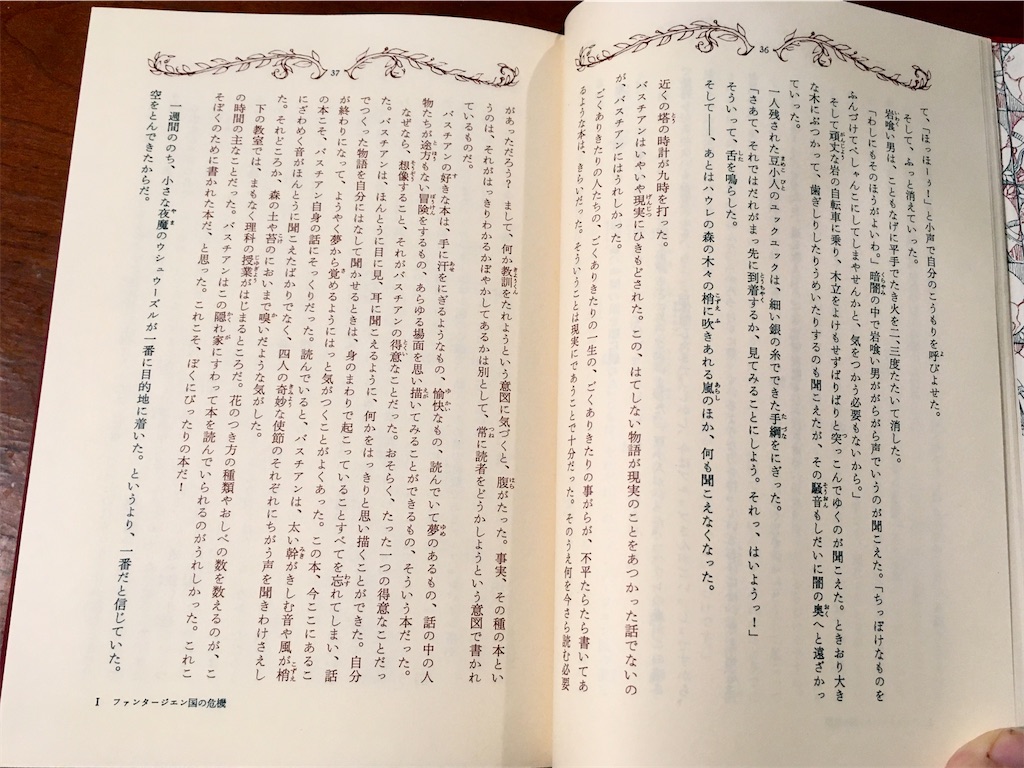 36
て、「ほっほーぅー!」と小声で自分のこうもりを呼びよせた。
そして、ふっと消えていった。
岩喰い男は、こともなげに平手でたき火を二、三度たたいて消した。
「わしにもそのほうがよいわ。」暗闇の中で岩喰い男ががらがら声でいうのが聞こえた。「ちっぽけなものを
ふんづけてぺしゃんこにしてしまやせんかと、気をつかう必要もないから。」
そして頑丈な岩の自転車に乗り、木立をよけもせずばりばりと突っこんでゆくのが聞こえた。ときおり大き
な木にぶつかって、歯ぎしりしたりうめいたりするのも聞こえたが、その騒音もしだいに闇の奥へと遠ざかっ
ていった。
一人残された豆小人のユックユックは、細い銀の糸でできた手綱をにぎった。
「さあて、それではだれがまっ先に到着するか、見てみることにしよう。それっ、はいようっ!」
そういって、舌を鳴らした。
そして――、あとはハウレの森の木々の梢に吹きあれる嵐のほか、何も聞こえなくなった。
近くの塔の時計が九時を打った。
バスチアンはいやいや現実にひきもどされた。この、はてしない物語が現実のことをあつかった話でないの
が、バスチアンにはうれしかった。
ごくありきたりの人たちの、ごくありきたりの一生の、ごくありきたりの事がらが、不平たらたら書いてあ
るような本は、きらいだった。そういうことは現実にであうことで十分だった。そのうえ何を今さら読む必要
37
があっただろう? まして、何か教訓をたれようという意図に気づくと、腹がたった。事実、その種の本とい
うのは、それがはっきりわかるかぼやかしてあるかは別として、常に読者をどうかしようという意図で書かれ
ているものだ。
バスチアンの好きな本は、手に汗をにぎるようなもの、愉快なもの、読んでいて夢のあるもの、話の中の人
物たちが途方もない冒険をするもの、あらゆる場面を思い描いてみることができるもの、そういう本だった。
なぜなら、想像すること、それがバスチアンの得意なことだった。おそらく、たった一つの得意なことだっ
た。バスチアンは、ほんとうに目に見、耳に聞こえるように、何かをはっきりと思い描くことができた。自分
でつくった物語を自分にはなして聞かせるときは、身のまわりで起こっていることすべてを忘れてしまい、話
が終わりになって、ようやく夢から覚めるようにはっと気がつくことがよくあった。この本、今ここにあるこ
の本こそ、バスチアン自身の話にそっくりだった。読んでいると、バスチアンは、太い幹がきしむ音や風が梢
にざわめく音がほんとうに聞こえたばかりでなく、四人の奇妙な使節のそれぞれにちがう声を聞きわけさえし
た。それどころか、森の土や苔のにおいまで嗅いだような気がした。
下の教室では、まもなく理科の授業がはじまるところだ。花のつき方の種類やおしべの数を数えるのが、こ
の時間の主なことだった。バスチアンはこの隠れ家にすわって本を読んでいられるのがうれしかった。これこ
そぼくのために書かれた本だ、と思った。これこそ、ぼくにぴったりの本だ!
一週間ののち、小さな夜魔のウシュヴーズルが一番に目的地に着いた。というより、一番だと信じていた。
空をとんできたからだ。
I ファンタージエン国の危機